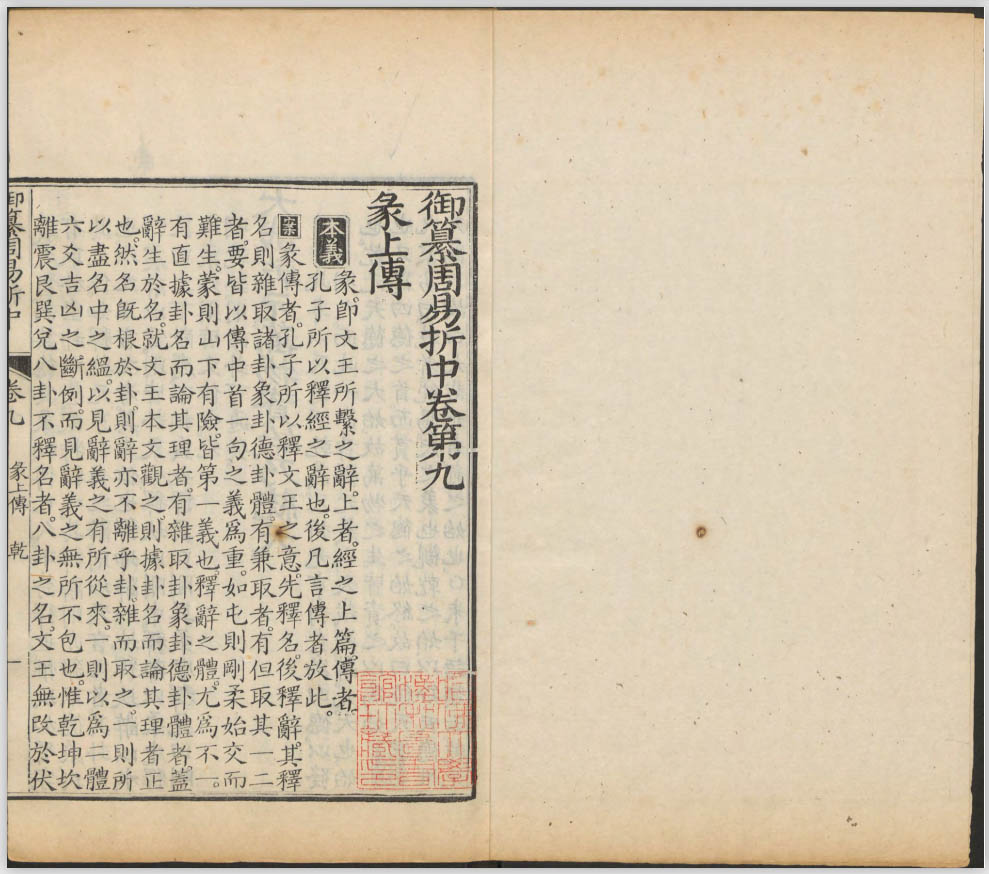 御纂周易折中卷第九
彖上傳
本義
彖即文王所繫之辭。上者。經之上篇。傳者。
孔子所以釋經之辭也。後凡言傳者放此。
案
彖傳者。孔子所以釋文王之意。先釋名。後釋辭。其釋
名則雜取諸卦象卦德卦體。有兼取者。有但取其一二
者。要皆以傳中首一句之義為重。如屯則剛柔始交而
難生。蒙則山下有險。皆第一義也。釋辭之體。尤為不一。
有直據卦名而論其理者。有雜取卦象卦德卦體者。蓋
辭生於名。就文王本文觀之。則據卦名而論其理者正
也。然名既根於卦。則辭亦不離乎卦。雜而取之。一則所
以盡名中之縕。以見辭義之有所從來。一則以為二體
六爻吉凶之斷例。而見辭義之無所不包也。惟乾坤坎
離震艮巽兌八卦不釋名者。八卦之名。文王無改於伏
御纂周易折中
卷九
彖上傳
乾
一